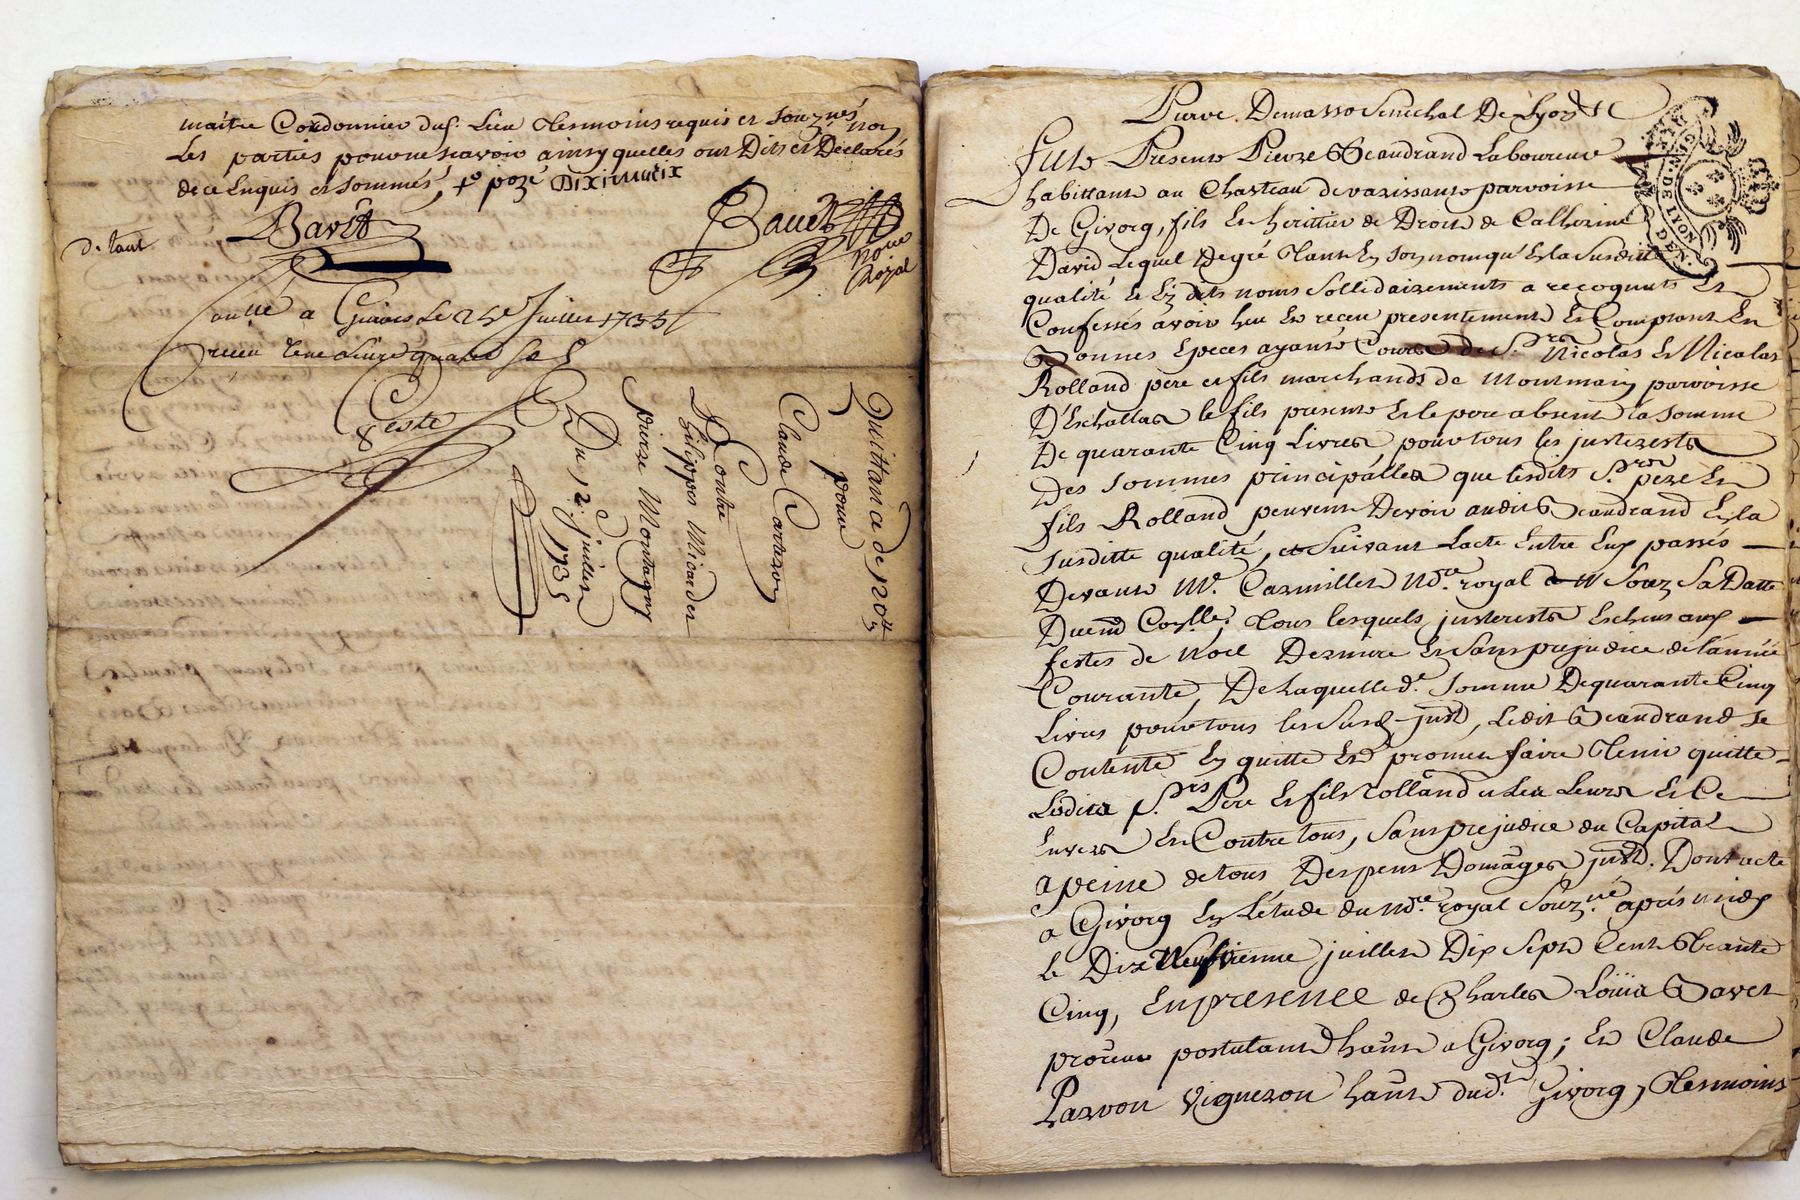 maitre Cordonnier dud. Lieu tesmoins requis et souznés non
Les parties pour ne scavoir ainsy quelles ont Dit et Déclarés
de ce Enquis et sommés,
Bavet
Bavet
no.re
Royal
a Givors Le 24e Juillet 1735
receu
Quittance de 120 lt
pour
Claude
Contre
philippes
pierre Montagny
Du 12e juillet
1735
Pierve Demasso Senechal De Lyon &c
fut Present Pierre Beaudrand Laboureur
habittant au Chasteau de varissant parroisse
De Givorg, fils Et herittier de Droit de Catherine
David Lequel De gré tant En son nom qu'En la Susditte
qualité et Ez dits noms Sollidairements a recognuts Et
Confessés avoir heu Et receu presentement Et Comptant En
Bonnes Epeces ayant Cours de S.rs Nicolas Et Nicolas
Rolland pere et fils marchands de Montmain parroisse
D'Eschallas le fils present Et le pere absent la somme
De quarante Cinq Livres pour tous les jnterests
Des sommes principalles que lesdits S.rs pere Et
fils Rolland peuvent Devoir audit Beaudrand En la
Susditte qualité, et Suivant Lacte Entre Eux passés
Devant M.e Carmillet No.re royal Souz Sa Datte
Tous lesquels jnterests Escheus aux
festes de Noel Derniere Et Sans prejudice de l'année
Courante, De Laquelle d.e Somme De quarante Cinq
Livres pour tous les Susd. jnt, Ledit Beaudrand Se
Contente En quitte Et promet faire Tenir quitte
Lesdits S.rs Pere Et fils rolland et Les Leurs Et Ce
Envers Et Contre tous, Sans prejudice du Capital
a peine de tous Despens Domages jnt. Dont acte
a Givorg En L'étude du No.re royal Souz.né aprés midy
le Dix Neufvieme juillet Dix Sept Cent Trante
Cinq, En presence de Charles Loüis Bavet
procur postulant hant a Givorg; Et Claude
Parvon Vigneron hant dud.t Givorg, Tesmoins
GEN. DE LYON